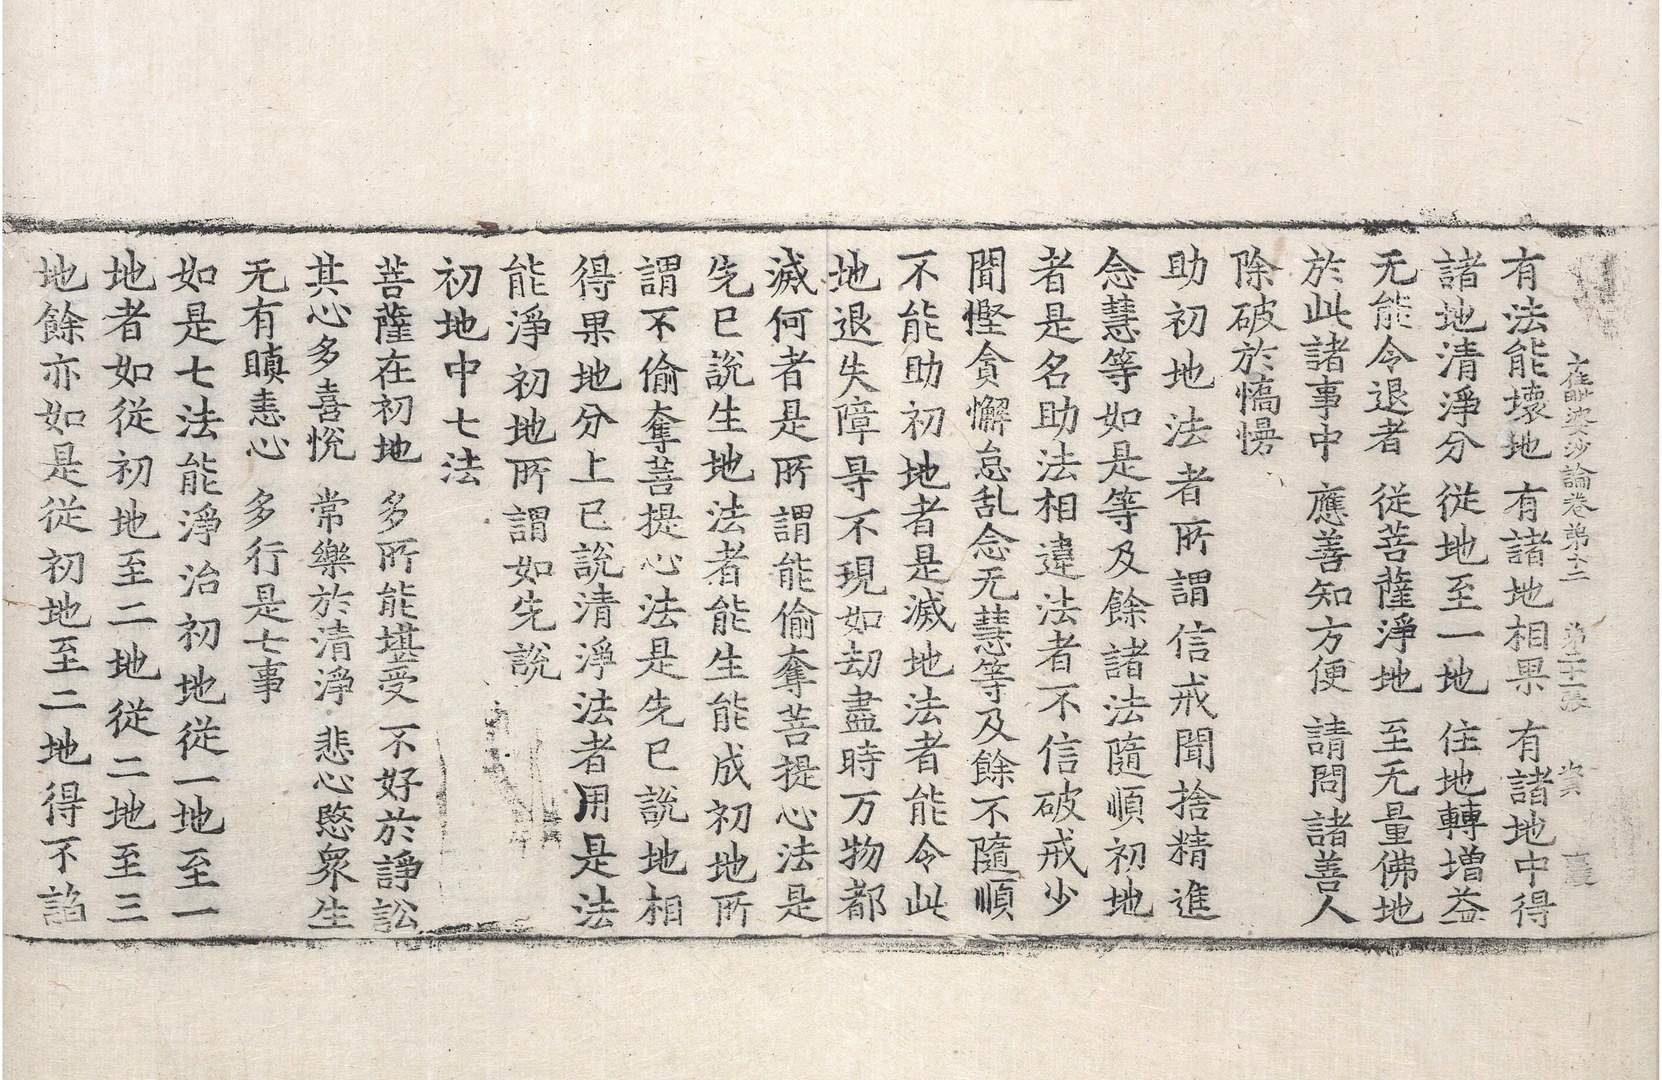 婆沙論卷第十二
有法能壞地　有諸地相果　有諸地中得
諸地清淨分　從地至一地　住地轉增益
无能令退者　從菩薩淨地　至无量佛地
於此諸事中　應善知方便　請問諸善人
除破於憍慢
助初地法者所謂信戒聞捨精進
念慧等如是等及餘諸法隨順初地
者是名助法相違法者不信破戒少
聞慳貪懈怠乱念无慧等及餘不隨順
不能助初地者是滅地法者能令此
地退失障㝵不現如劫盡時万物都
滅何者是所謂能偷奪菩提心法是
先已說生地法者能生能成初地所
謂不偷奪菩提心法是先已說地相
得果地分上已說清淨法者用是法
能淨初地所謂如先說
初地中七法
菩薩在初地　多所能堪受　不好於諍訟
其心多喜悅　常樂於清淨　悲心愍衆生
无有瞋恚心　多行是七事
如是七法能淨治初地從一地至一
地者如從初地至二地從二地至三
地餘亦如是從初地至二地得不諂